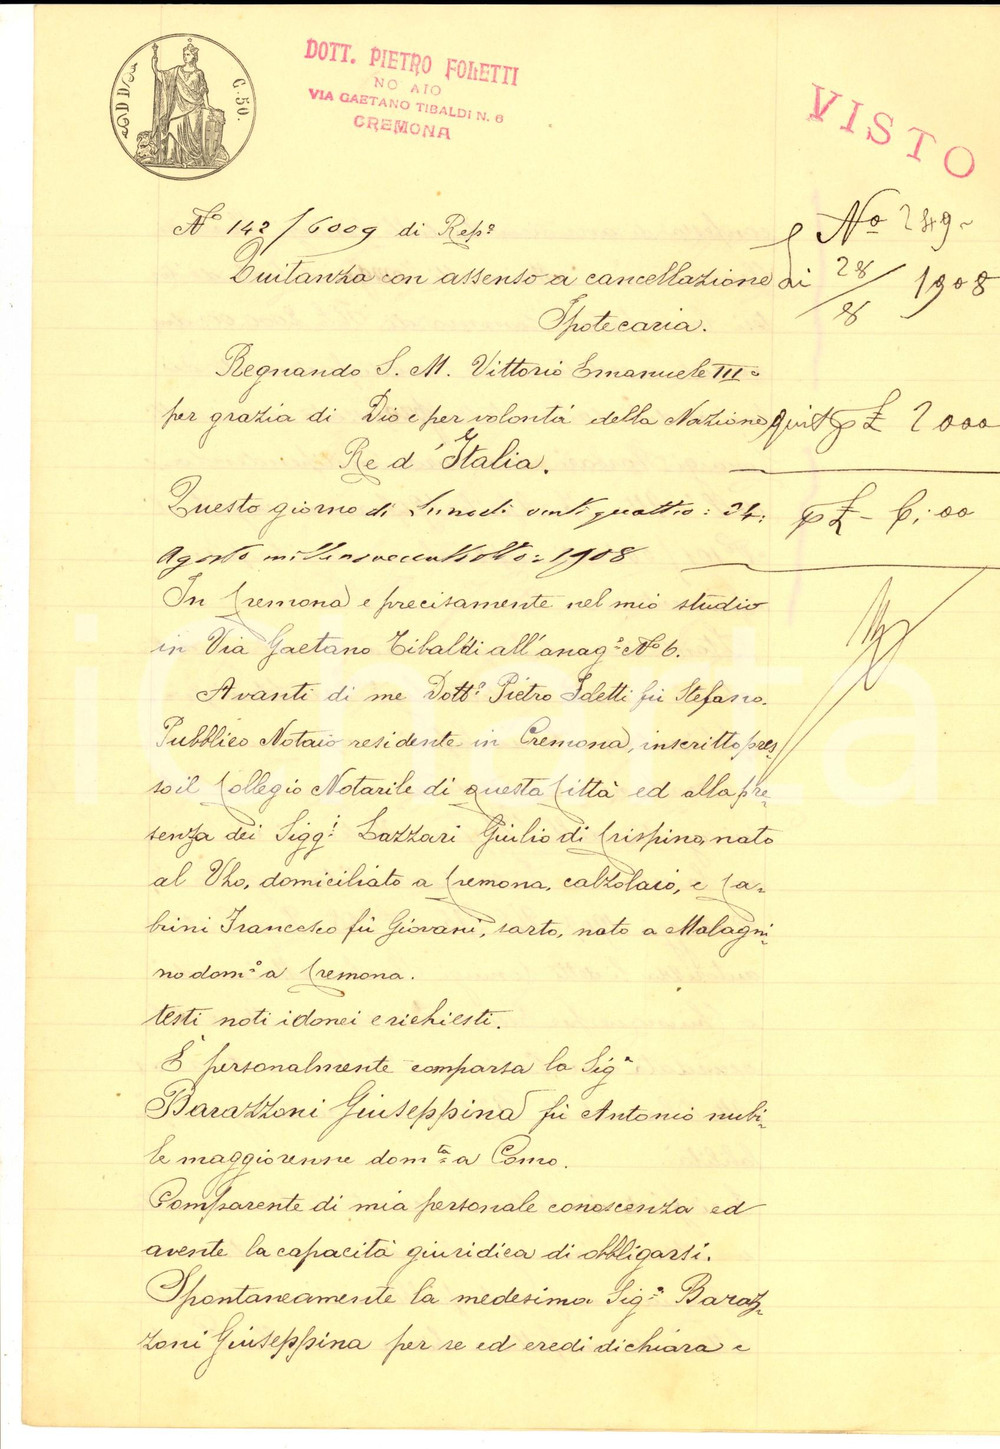 C. 50.
DOTT. PIETRO FOLETTI
NO AIO
VIA GAETANO TIBALDI N. 6
CREMONA
VISTO
No 142/6009 di Repo
No 249
Quitanza con assenso a cancellazione
di 28/8 1908
Ipotecaria.
Regnando S. M. Vittorio Emanuele IIIo
per grazia di Dio e per volontà della Nazione
quit p £ 2000
Re d'Italia.
Questo giorno di Lunedi ventiquattro: 24:
p £ - 6,00
Agosto millenovecentootto: 1908
In Cremona e precisamente nel mio studio
in Via Gaetano Tibaldi all'anag.e No 6.
Avanti di me Dottr Pietro Foletti fù Stefano.
Pubblico Notaio residente in Cremona, inscritto pres-
so il Collegio Notarile di questa Città ed alla pre-
senza dei Sigg.i Lazzari Giulio di Crispino, nato
al Vho, domiciliato a Cremona, calzolaio, e Ca-
brini Francesco fù Giovani, sarto, nato a Malagni-
no domo a Cremona.
testi noti idonei e richiesti.
È personalmente comparsa la Siga
Barazzoni Giuseppina fù Antonio nubi-
le maggiorenne domta a Como.
Comparente di mia personale conoscenza ed
avente la capacità giuridica di obbligarsi.
Spontaneamente la medesima Siga Baraz-
zoni Giuseppina per se ed eredi dichiara e